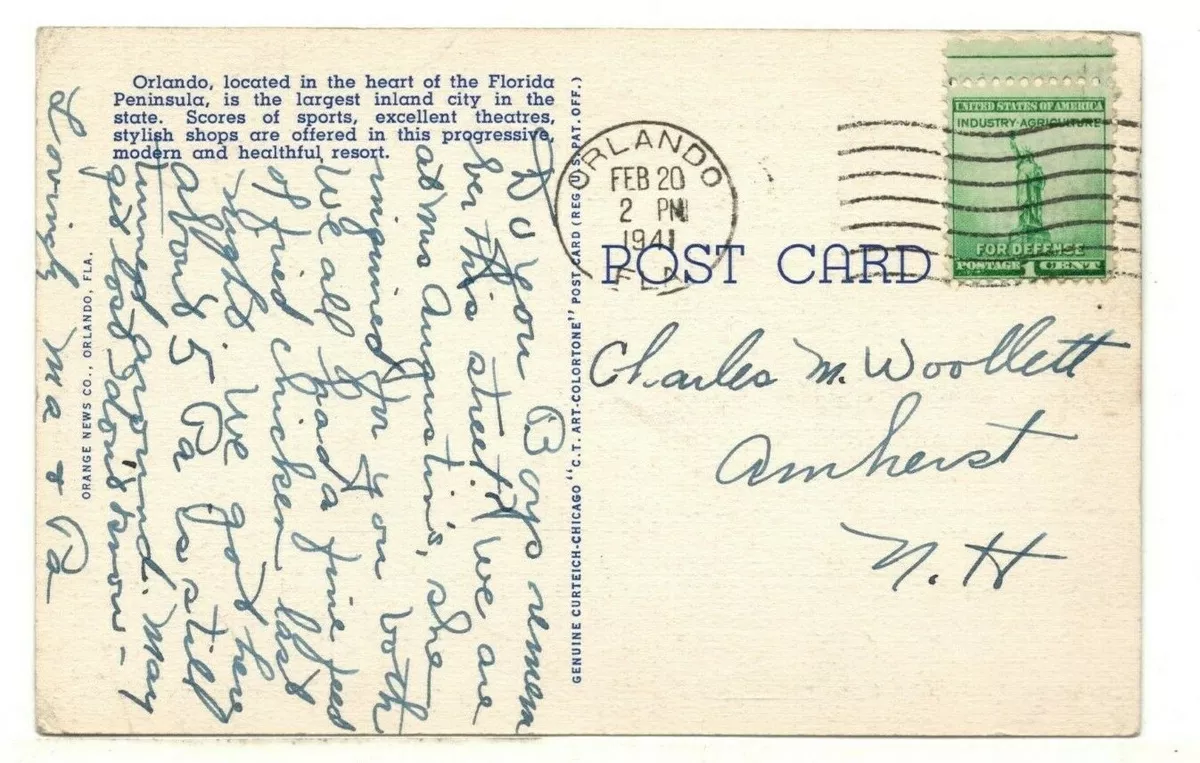 Orlando, located in the heart of the Florida
Peninsula, is the largest inland city in the
state. Scores of sports, excellent theatres,
stylish shops are offered in this progressive,
modern and healthful resort.
ORANGE NEWS CO., ORLANDO, FLA.
GENUINE CURTEICH-CHICAGO "C.T. ART-COLORTONE" POST CARD (REG. U.S. PAT. OFF.)
POST CARD
ORLANDO
FEB 20
2 PM
1941
FLA
UNITED STATES OF AMERICA
INDUSTRY-AGRICULTURE
FOR DEFENSE
POSTAGE 1 CENT
Do you Boys remem
ber this street? We are
at Mrs Augustin's, she
inquired for you both
We all had a fine feed
of fried chicken last
night. We got here
about 5 Pa is still
turned around. May
get lost don't know -
Lovingly Ma & Pa
Charles M. Woollett
Amherst
N. H